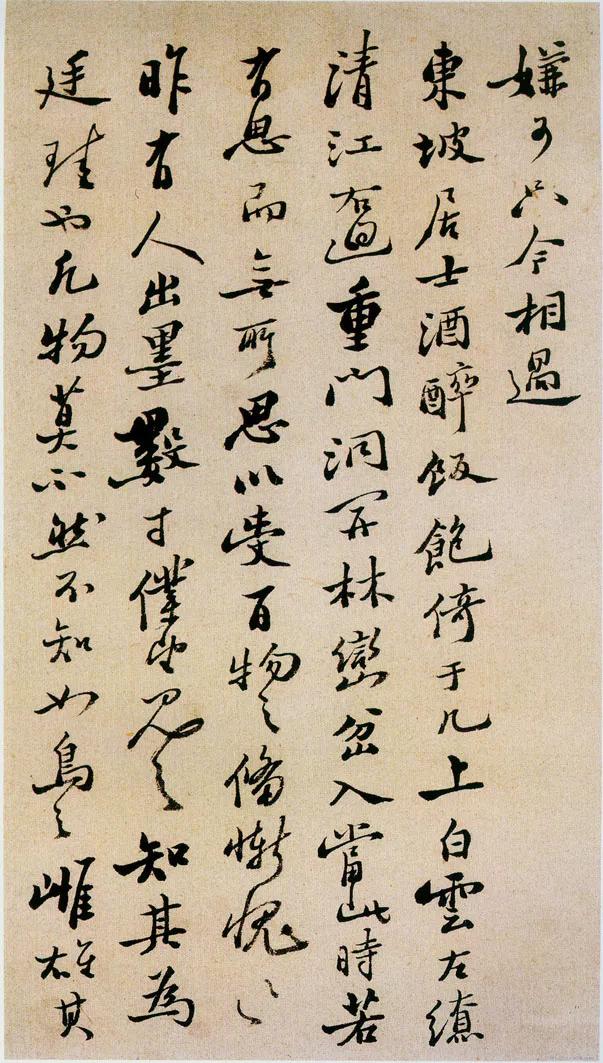 嫌可只令相過
東坡居士酒醉飯飽倚于几上白雲左繞
清江右迴重門洞開林巒岔入當此時若
有思而無所思以受百物之備慚愧〻〻
昨有人出墨數寸僕望見之知其為
廷珪也凡物莫不然不知如鳥之雌雄其